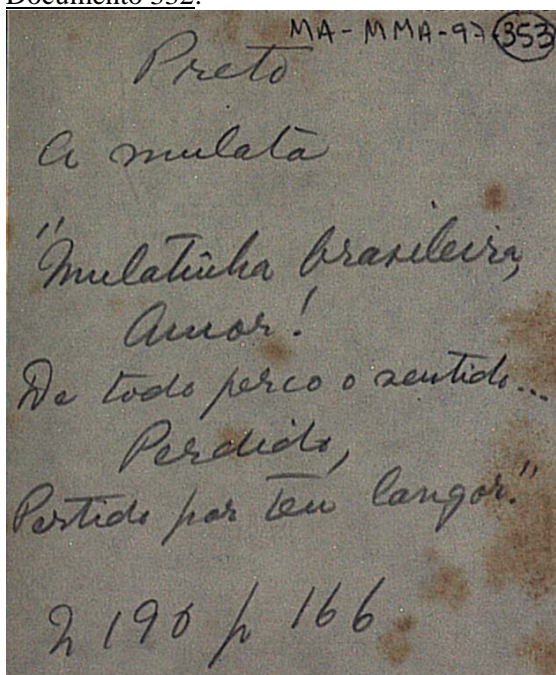 Documento 352:
MA-MMA-97 353
Preto
A mulata
"Mulatinha brasileira,
Amor!
De todo perco o sentido...
Perdido,
Partido por teu langor."
190 p 166